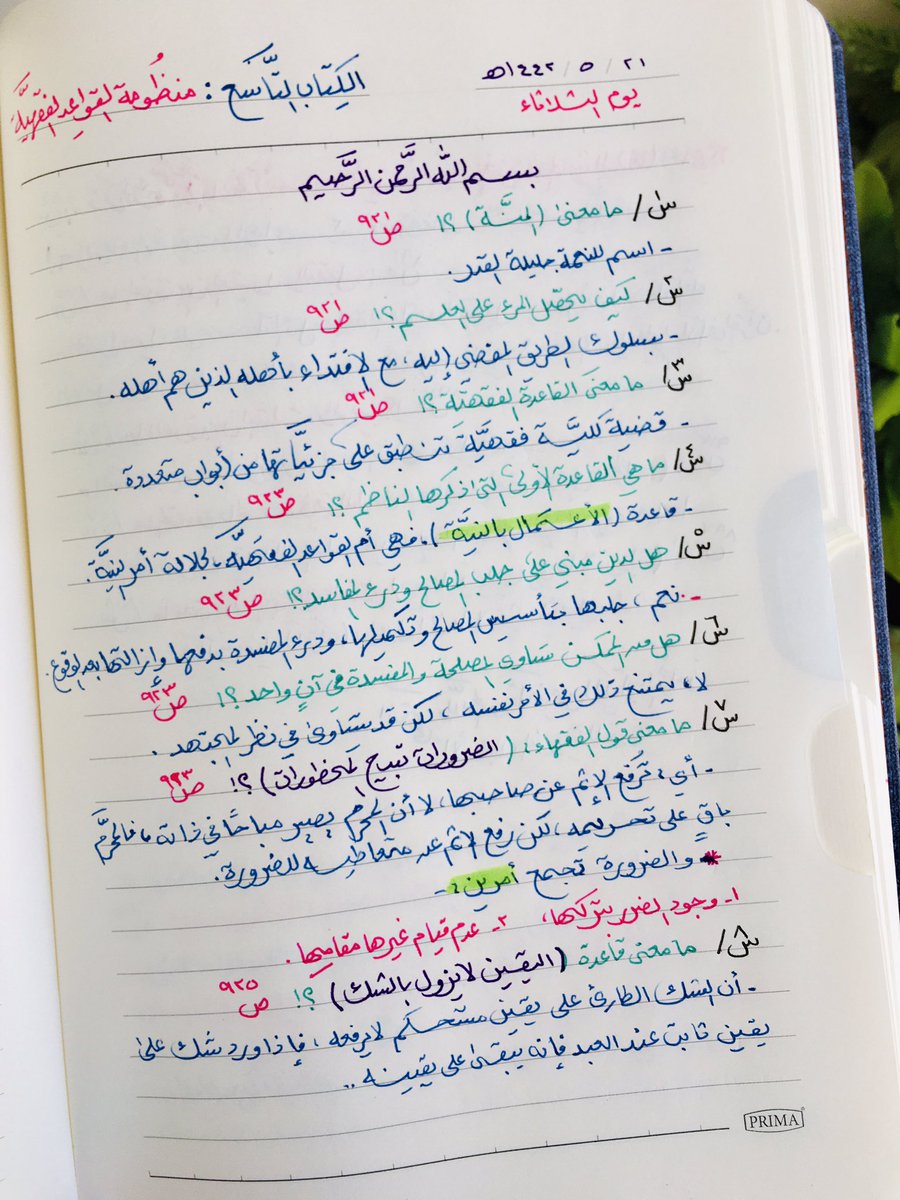 ٢١ / ٥ / ١٤٤٢هـ
يوم الثلاثاء
الكتاب التَّاسع : منظُومة القواعد الفقهيَّة
بسم اللَّه الرَّحمن الرَّحيم
س١/ ما معنى (المنَّة) ؟! ص٩٢١
- اسم للنعمة جليلة القدر.
س٢/ كيف يتحصّل المرء على العلم ؟! ص٩٢١
- بسلوك الطريق المفضي إليه ، مع الاقتداء بأهله الذين هم أهله .
س٣/ ما معنى القاعدة الفقهيَّة ؟! ص٩٢١
- قضية كليَّة فقهيَّة تنطبق على جزئيَّاتها من أبواب متعددة .
س٤/ ما هي القاعدة الأولى التي ذكرها الناظم ؟! ص٩٢٣
- قاعدة (الأعمال بالنيَّة) ، فهي أم القواعد الفقهيَّة ، لجلالة أمر النيَّة.
س٥/ هل الدين مبني على جلب المصالح ودرء المفاسد ؟! ص٩٢٣
- نعم ، جلبها بتأسيس المصالح وتكميلها ، ودرء المفسدة بدفعها وإزالتها بعد الوقوع .
س٦/ هل من الممكن تساوي المصلحة والمفسدة في آنٍ واحد ؟! ص٩٢٣
لا، يمتنع ذلك في الأمر نفسه ، لكن قد يتساوى في نظر المجتهد .
س٧/ ما معنى قول الفقهاء : (الضرورات تبيح المحظورات) ؟! ص٩٢٣
- أي : تَرفع الإثم عن صاحبها، لا أن المحرم يصير مباحًا في ذاته ، فالمحرَّم
باقٍ على تحريمه ، لكن رفع الإثم عن متعاطيه للضرورة .
* والضرورة تجمع أمرين :-
١- وجود الضرر بتركها، ٢- عدم قيام غيرها مقامها .
س٨/ ما معنى قاعدة (اليقين لا يزول بالشك) ؟! ص٩٢٥
- أن الشك الطارئ على يقين مستحكم لا يرفعه ، فإذا ورد شك على
يقين ثابت عند العبد فإنه يبقى على يقينه ..
PRIMA